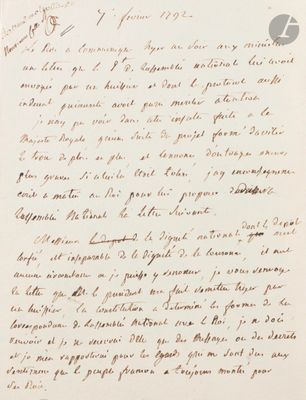 7. février 1792
Le Roi a communiqué hyer au soir aux ministres
une lettre que le Pt de l'assemblée national lui avoit
envoyée par un huissier et dont le protocol aussi
indecent paroissoit avoir peu meriter attention
je n'ay pu voir dans cette insulte faite a la
Majesté Royale qu'une suite du projet formé d'avilir
le trone de plus en plus, et l'annonce d'outrages encore
plus graves si celui ci étoit toléré. j'ay en conséquence
au Roi pour lui proposer d'
l'assemblée National la lettre suivante.
Messieurs le depot de la dignité national dont le depot
confié et inseparable de la dignité de la couronne, il n'est
aucun inconvenient ou je puisse y renoncer, je vous renvoye
la lettre que le president me fait remettre hyer par
un huissier, la constitution a determiné les formes de la
correspondance de l'assemblée national avec le Roi, je ne dois
recevoir et je ne recevrai d'elle que des messages ou des decrets
et je m'en rapporterai pour les égards qui me sont dus aux
sentiments que le peuple francois a toujours montrés pour
ses Rois.